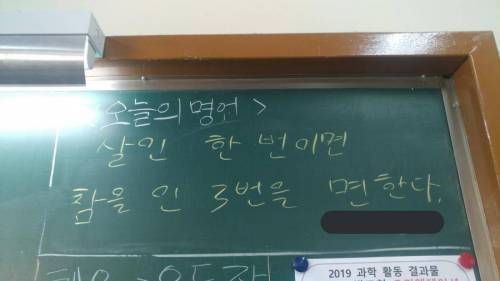 <오늘의 명언>
살인 한 번이면
참을 인 3번을 면한다.
2019 과학 활동 결과물